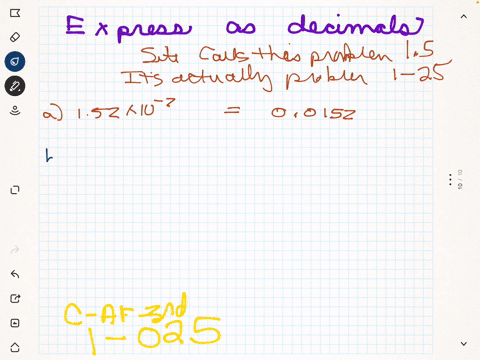 Express as decimals?
Site Calls this problem 1.5
It's actually problem 1-25
a) 1.52 x 10⁻² = 0.0152
C-AF-3rd
1-025